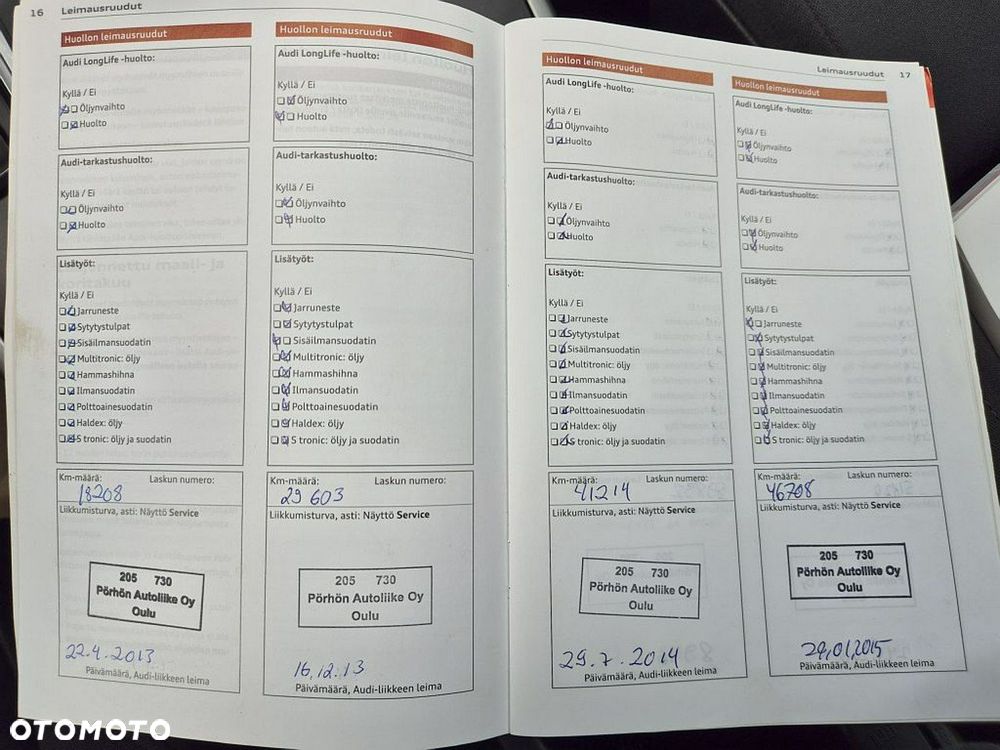 16 Leimausruudut
Huollon leimausruudut
Audi LongLife -huolto:
Kyllä / Ei
Öljynvaihto
Huolto
Audi-tarkastushuolto:
Kyllä / Ei
Öljynvaihto
Huolto
Lisätyöt:
Kyllä / Ei
Jarruneste
Sytytystulpat
Sisäilmansuodatin
Multitronic: öljy
Hammashihna
Ilmansuodatin
Polttoainesuodatin
Haldex: öljy
S tronic: öljy ja suodatin
Km-määrä: Laskun numero:
18208
Liikkumisturva, asti: Näyttö Service
205 730
Pörhön Autoliike Oy
Oulu
22.4.2013
Päivämäärä, Audi-liikkeen leima
Huollon leimausruudut
Audi LongLife -huolto:
Kyllä / Ei
Öljynvaihto
Huolto
Audi-tarkastushuolto:
Kyllä / Ei
Öljynvaihto
Huolto
Lisätyöt:
Kyllä / Ei
Jarruneste
Sytytystulpat
Sisäilmansuodatin
Multitronic: öljy
Hammashihna
Ilmansuodatin
Polttoainesuodatin
Haldex: öljy
S tronic: öljy ja suodatin
Km-määrä: Laskun numero:
29 603
Liikkumisturva, asti: Näyttö Service
205 730
Pörhön Autoliike Oy
Oulu
16.12.13
Päivämäärä, Audi-liikkeen leima
Leimausruudut 17
Huollon leimausruudut
Audi LongLife -huolto:
Kyllä / Ei
Öljynvaihto
Huolto
Audi-tarkastushuolto:
Kyllä / Ei
Öljynvaihto
Huolto
Lisätyöt:
Kyllä / Ei
Jarruneste
Sytytystulpat
Sisäilmansuodatin
Multitronic: öljy
Hammashihna
Ilmansuodatin
Polttoainesuodatin
Haldex: öljy
S tronic: öljy ja suodatin
Km-määrä: Laskun numero:
41214
Liikkumisturva, asti: Näyttö Service
205 730
Pörhön Autoliike Oy
Oulu
29.7.2014
Päivämäärä, Audi-liikkeen leima
Huollon leimausruudut
Audi LongLife -huolto:
Kyllä / Ei
Öljynvaihto
Huolto
Audi-tarkastushuolto:
Kyllä / Ei
Öljynvaihto
Huolto
Lisätyöt:
Kyllä / Ei
Jarruneste
Sytytystulpat
Sisäilmansuodatin
Multitronic: öljy
Hammashihna
Ilmansuodatin
Polttoainesuodatin
Haldex: öljy
S tronic: öljy ja suodatin
Km-määrä: Laskun numero:
46708
Liikkumisturva, asti: Näyttö Service
205 730
Pörhön Autoliike Oy
Oulu
29,01,2015
Päivämäärä, Audi-liikkeen leima
OTOMOTO